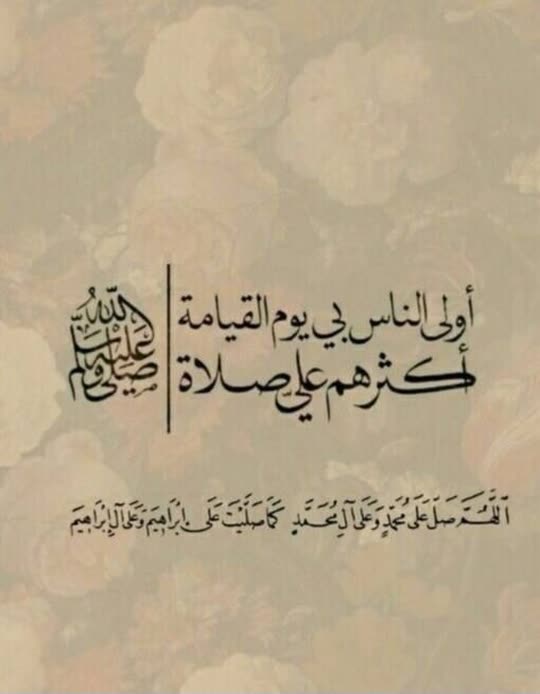 أولى الناس بي يوم القيامة
أكثرهم عليّ صلاة
صلى الله عليه وسلم
اللَّهُمَّ صَلِّ عَلَى مُحَمَّدٍ وَعَلَى آلِ مُحَمَّدٍ كَمَا صَلَّيْتَ عَلَى إِبْرَاهِيمَ وَعَلَى آلِ إِبْرَاهِيمَ